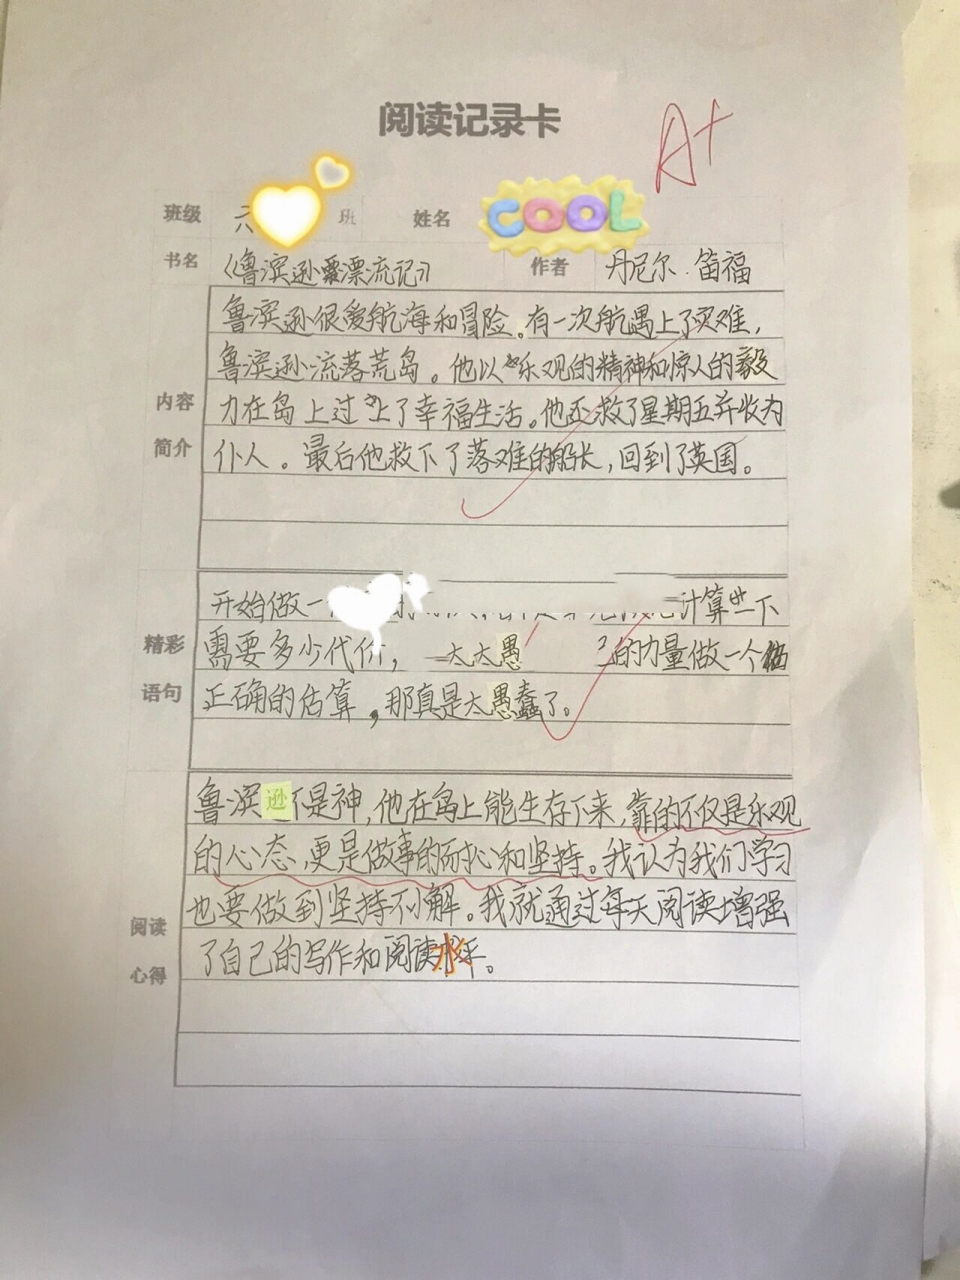 阅读记录卡
A+
班级 六 班 姓名 COOL
书名 《鲁滨逊漂流记》 作者 丹尼尔·笛福
内容简介
鲁滨逊很爱航海和冒险。有一次航遇上了灾难，
鲁滨逊流落荒岛。他以乐观的精神和惊人的毅
力在岛上过上了幸福生活。他还救了星期五并收为
仆人。最后他救下了落难的船长，回到了英国。
精彩语句
开始做一 计算一下
需要多少代价， 太太愚 己的力量做一个
正确的估算，那真是太愚蠢了。
阅读心得
鲁滨逊不是神，他在岛上能生存下来，靠的不仅是乐观
的心态，更是做事的耐心和坚持。我认为我们学习
也要做到坚持不懈。我就通过每天阅读增强
了自己的写作和阅读水平。